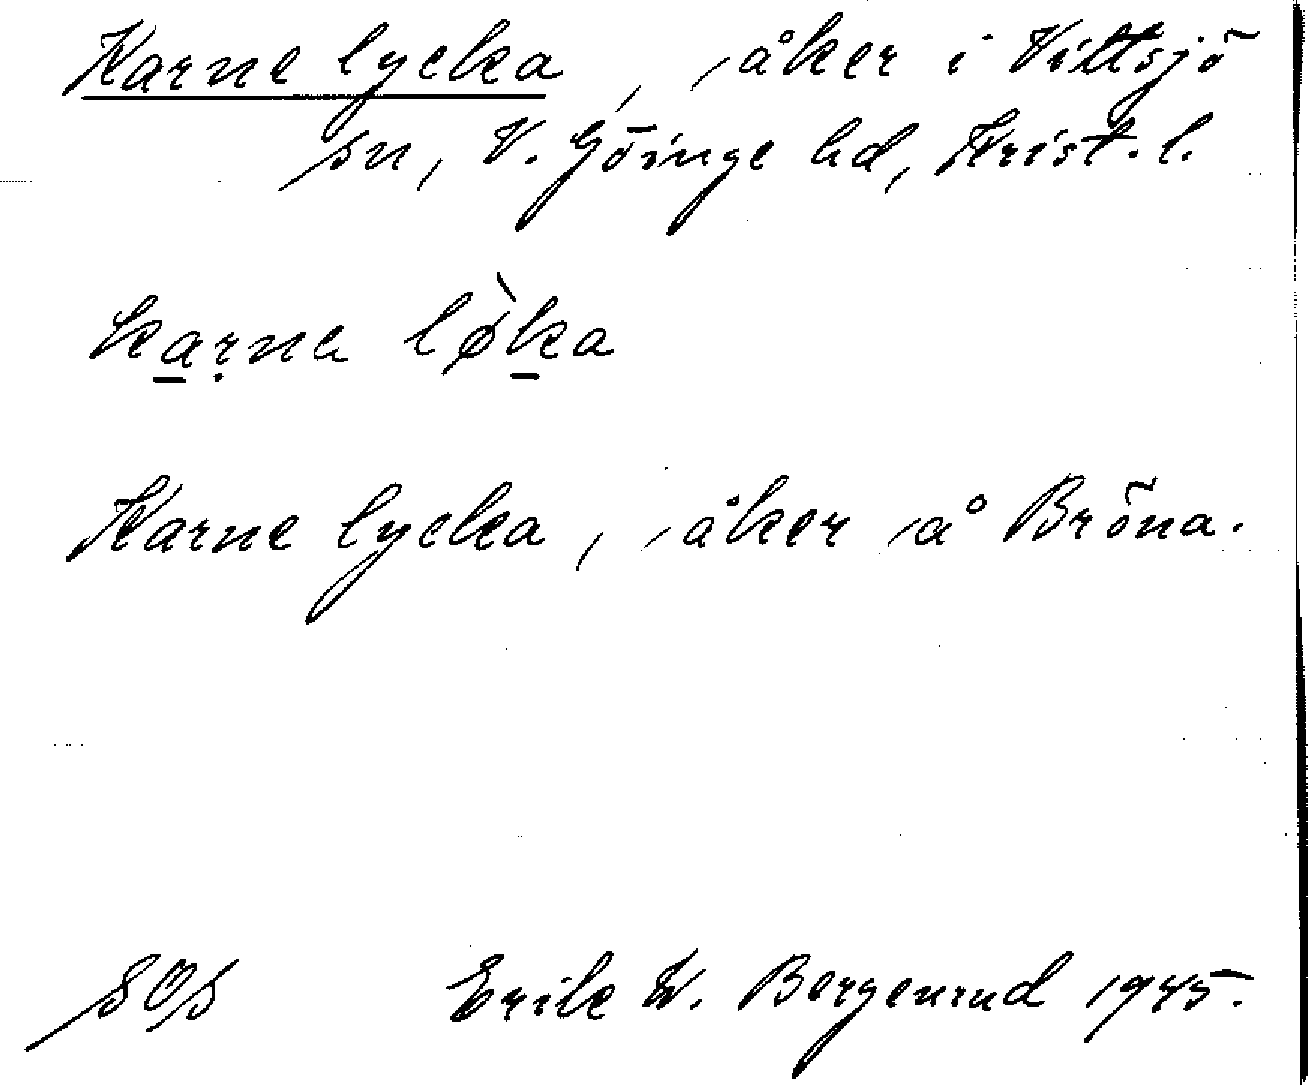 Karne lycka, åker i Vittsjö
sn, V. Göinge hd, Krist. l.
karna lø̀ka
Karne lycka, åker å Bröna.
SOS Erik W. Bergenrud 1945.